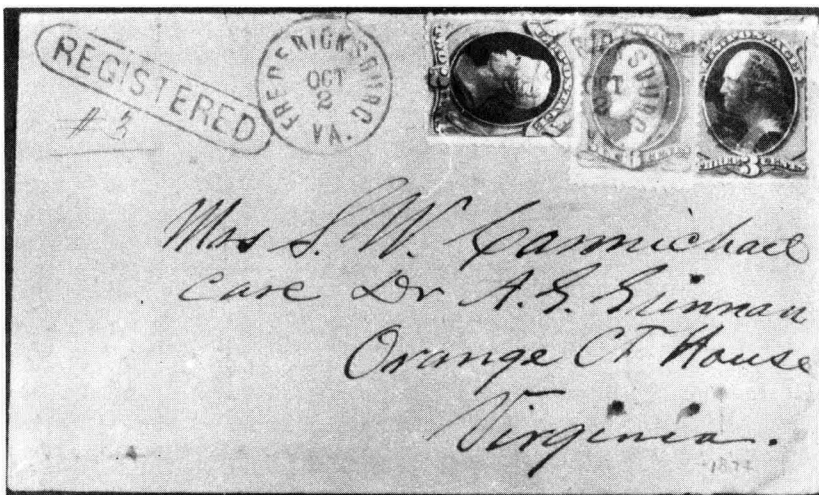 REGISTERED
# 3
FREDERICKSBURG
OCT
2
VA.
THREE 3 CENTS
Mrs S. W. Carmichael
care Dr A. G. Grinnan
Orange CT House
Virginia.